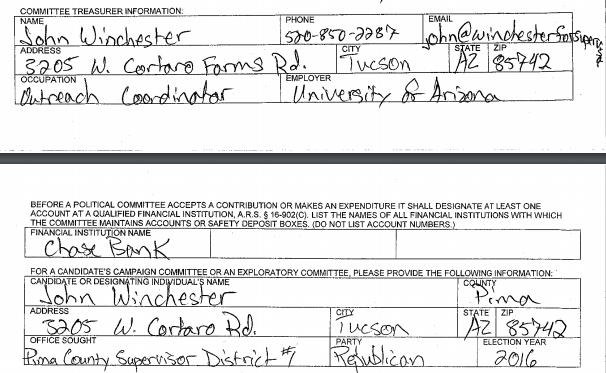 COMMITTEE TREASURER INFORMATION:
NAME PHONE EMAIL
John Winchester 520-850-2287 john@winchesterforsuper
ADDRESS CITY STATE ZIP
3205 W. Cortaro Farms Rd. Tucson AZ 85742
OCCUPATION EMPLOYER
Outreach Coordinator University of Arizona
BEFORE A POLITICAL COMMITTEE ACCEPTS A CONTRIBUTION OR MAKES AN EXPENDITURE IT SHALL DESIGNATE AT LEAST ONE
ACCOUNT AT A QUALIFIED FINANCIAL INSTITUTION, A.R.S. § 16-902(C). LIST THE NAMES OF ALL FINANCIAL INSTITUTIONS WITH WHICH
THE COMMITTEE MAINTAINS ACCOUNTS OR SAFETY DEPOSIT BOXES. (DO NOT LIST ACCOUNT NUMBERS.)
FINANCIAL INSTITUTION NAME
Chase Bank
FOR A CANDIDATE'S CAMPAIGN COMMITTEE OR AN EXPLORATORY COMMITTEE, PLEASE PROVIDE THE FOLLOWING INFORMATION:
CANDIDATE OR DESIGNATING INDIVIDUAL'S NAME COUNTY
John Winchester Pima
ADDRESS CITY STATE ZIP
3205 W. Cortaro Rd. Tucson AZ 85742
OFFICE SOUGHT PARTY ELECTION YEAR
Pima County Supervisor District #1 Republican 2016